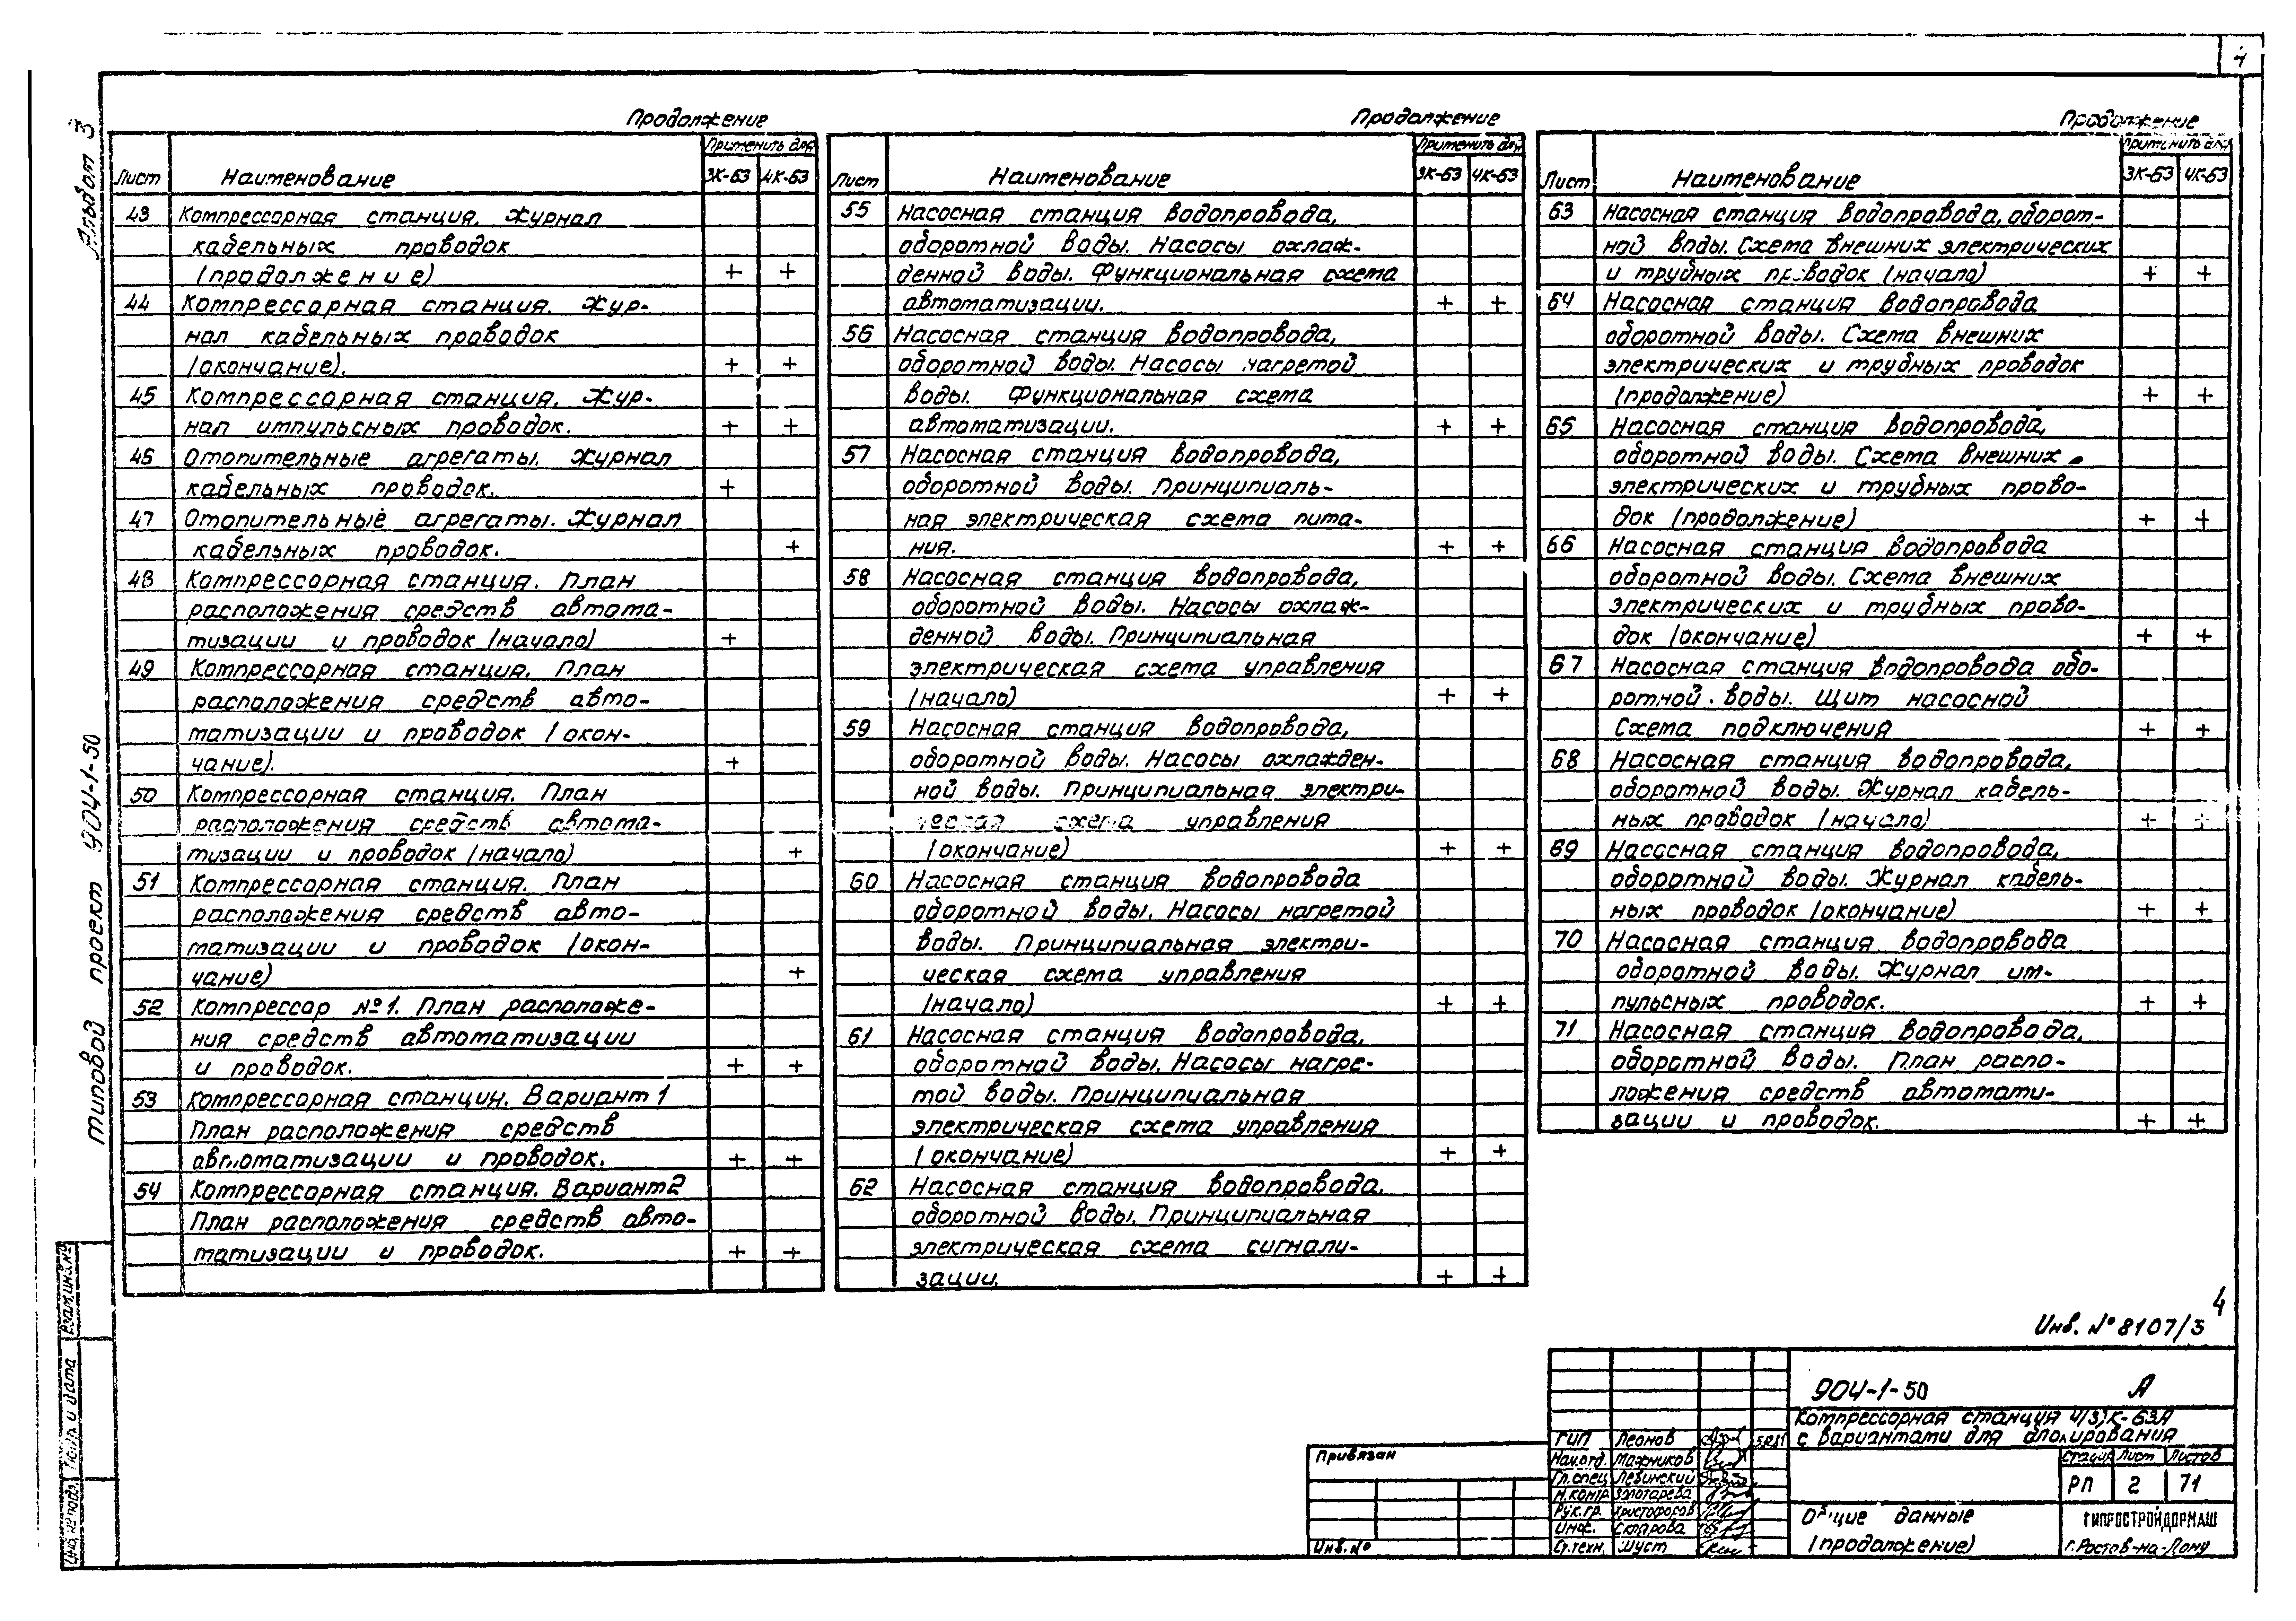 4
Альбом 3
типовой проект 904-1-50
Продолжение
Лист Наименование Применить для
3К-63 4К-63
43 Компрессорная станция. Журнал
кабельных проводок
(продолжение) + +
44 Компрессорная станция. Жур-
нал кабельных проводок
(окончание). + +
45 Компрессорная станция. Жур-
нал импульсных проводок. + +
46 Отопительные агрегаты. Журнал
кабельных проводок. +
47 Отопительные агрегаты. Журнал
кабельных проводок. +
48 Компрессорная станция. План
расположения средств автома-
тизации и проводок (начало) +
49 Компрессорная станция. План
расположения средств авто-
матизации и проводок (окон-
чание). +
50 Компрессорная станция. План
расположения средств автома-
тизации и проводок (начало) +
51 Компрессорная станция. План
расположения средств авто-
матизации и проводок (окон-
чание) +
52 Компрессор №1. План расположе-
ния средств автоматизации
и проводок. + +
53 Компрессорная станция. Вариант 1
План расположения средств
автоматизации и проводок. + +
54 Компрессорная станция. Вариант 2
План расположения средств авто-
матизации и проводок. + +
Продолжение
Лист Наименование Применить для
3К-63 4К-63
55 Насосная станция водопровода,
оборотной воды. Насосы охлаж-
денной воды. Функциональная схема
автоматизации. + +
56 Насосная станция водопровода,
оборотной воды. Насосы нагретой
воды. Функциональная схема
автоматизации. + +
57 Насосная станция водопровода,
оборотной воды. Принципиаль-
ная электрическая схема пита-
ния. + +
58 Насосная станция водопровода,
оборотной воды. Насосы охлаж-
денной воды. Принципиальная
электрическая схема управления
(начало) + +
59 Насосная станция водопровода,
оборотной воды. Насосы охлажден-
ной воды. Принципиальная электри-
ческая схема управления
(окончание) + +
60 Насосная станция водопровода
оборотной воды. Насосы нагретой
воды. Принципиальная электри-
ческая схема управления
(начало) + +
61 Насосная станция водопровода,
оборотной воды. Насосы нагре-
той воды. Принципиальная
электрическая схема управления
(окончание) + +
62 Насосная станция водопровода,
оборотной воды. Принципиальная
электрическая схема сигнали-
зации. + +
Продолжение
Лист Наименование Применить для
3К-63 4К-63
63 Насосная станция водопровода, оборот-
ной воды. Схема внешних электрических
и трубных проводок (начало) + +
64 Насосная станция водопровода
оборотной воды. Схема внешних
электрических и трубных проводок
(продолжение) + +
65 Насосная станция водопровода,
оборотной воды. Схема внешних
электрических и трубных прово-
док (продолжение) + +
66 Насосная станция водопровода
оборотной воды. Схема внешних
электрических и трубных прово-
док (окончание) + +
67 Насосная станция водопровода обо-
ротной воды. Щит насосной
Схема подключения + +
68 Насосная станция водопровода,
оборотной воды. Журнал кабель-
ных проводок (начало) + +
69 Насосная станция водопровода,
оборотной воды. Журнал кабель-
ных проводок (окончание) + +
70 Насосная станция водопровода
оборотной воды. Журнал им-
пульсных проводок. + +
71 Насосная станция водопровода,
оборотной воды. План распо-
ложения средств автомати-
зации и проводок. + +
4
Инв. №8107/3
904-1-50 А
Компрессорная станция 4(3)К-63А
с вариантами для блокирования
ГИП Леонов
Нач.отд. Мажников
Гл.спец Левинский
Н.контр. Золотарева
Рук.гр. Христофоров
Инж.
Ст.техн. Шуст
Стадия Лист Листов
РП 2 71
Общие данные
(продолжение)
ГИПРОСТРОЙДОРМАШ
г.Ростов-на-Дону
Привязан
Инв.№
Взам.инв.№
Подп. и дата
Инв.№ подл.